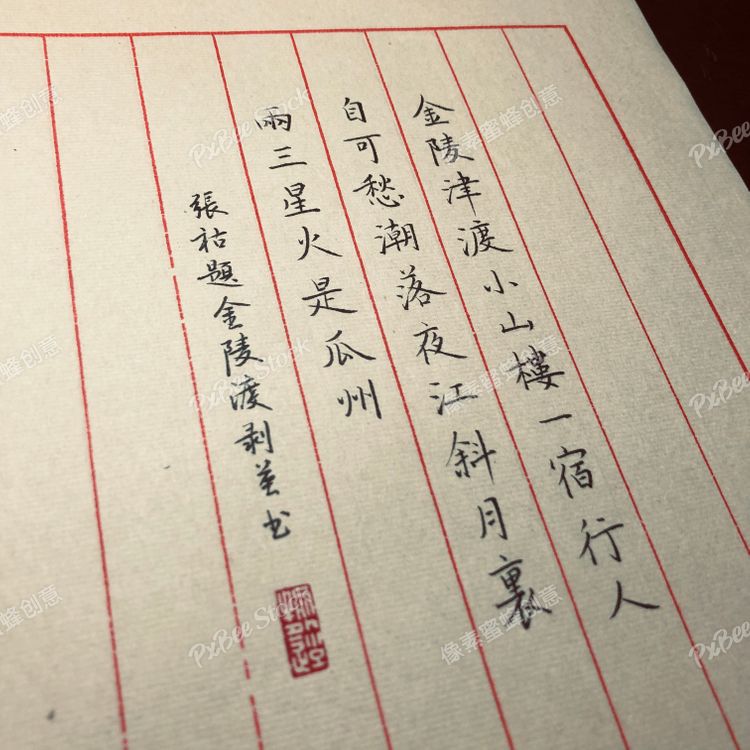 金陵津渡小山樓一宿行人
自可愁潮落夜江斜月裏
兩三星火是瓜州
張祜題金陵渡剥萱书
PxBee Stock
像素蜜蜂创意